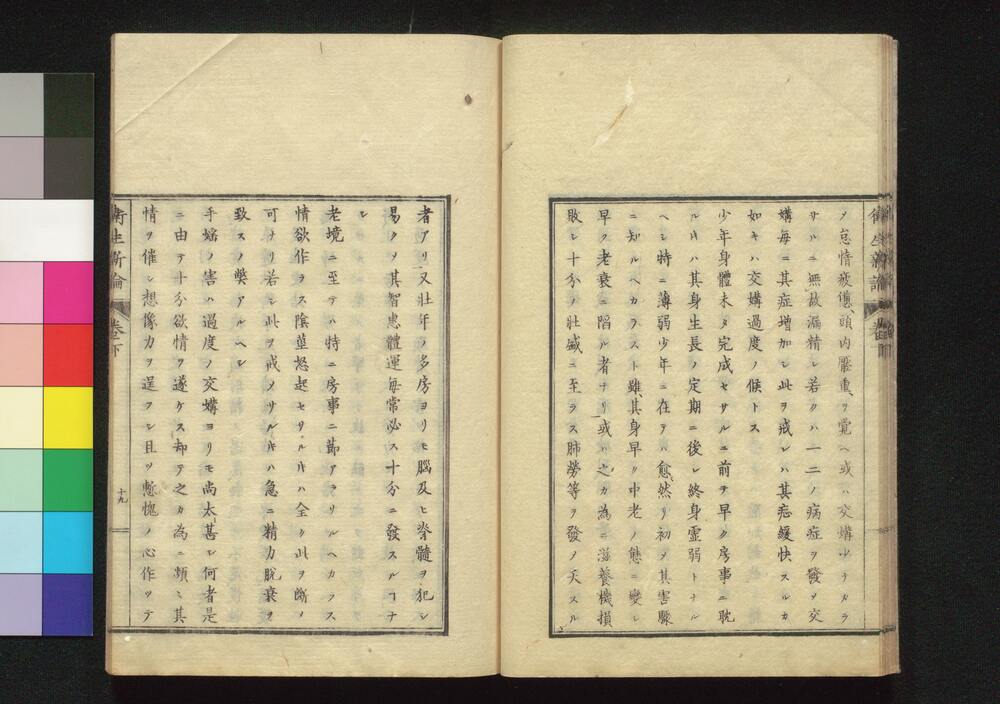 ノ怠惰疲憊頭内壓重ヲ覺ヘ或ハ交媾少ナカラ
サルニ無故漏精シ若クハ一二ノ病症ヲ發シ交
媾毎ニ其症増加シ此ヲ戒レハ其患緩快スルカ
如キハ交媾過度ノ候トス
少年身體未タ完成セサルニ前チ早ク房事ニ耽
ルキハ其身生長ノ定期ニ後レ終身虚弱トナル
ヘシ特ニ薄弱少年ニ在テハ愈然リ初メ其害驟
ニ知ルヘカラスト雖𪜈其身早ク中老ノ態ニ變シ
早ク老衰ニ陷ル者ナリ或ハ之カ為ニ滋養機損
敗シ十分ノ壮盛ニ至ラス肺勞等ヲ發ノ夭スル
衛生新論
巻之下
者アリ又壮年ノ多房ヨリモ腦及ヒ脊髓ヲ犯シ
易クノ其智慮體運毎常必ス十分ニ發スルヿナ
シ
老境ニ至テハ特ニ房事ニ節アラサルヘカラス
情欲作ラス陰莖怒起セサルキハ全ク此ヲ斷ノ
可ナリ若シ此ヲ戒メサルキハ急ニ精力脱衰ヲ
致スノ獘アルヘシ
手婬ノ害ハ過度ノ交媾ヨリモ尚太甚シ何者是
ニ由テ十分欲情ヲ遂ケス却テ之カ為ニ頻ニ其
情ヲ催シ想像力ヲ逞フシ且ツ慙愧ノ心作ツテ
衛生新論
巻之下
十九